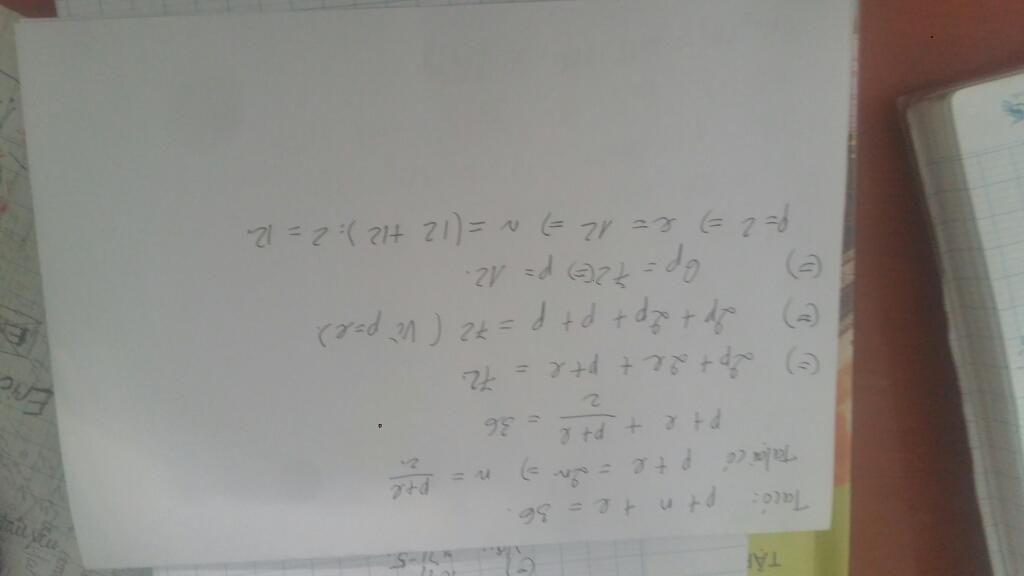 Ta có: p + n + e = 36.
Ta lại có p + e = 2n => n = p+e/2
p + e + p+e/2 = 36
(=) 2p + 2e + p+e = 72
(=) 2p + 2p + p + p = 72 (Vì p=e)
(=) 6p = 72 (=) p = 12.
p=2 => e = 12 => n = (12 +12): 2 = 12
TẬP